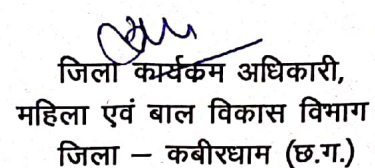 जिला कार्यकम अधिकारी,
महिला एवं बाल विकास विभाग
जिला – कबीरधाम (छ.ग.)